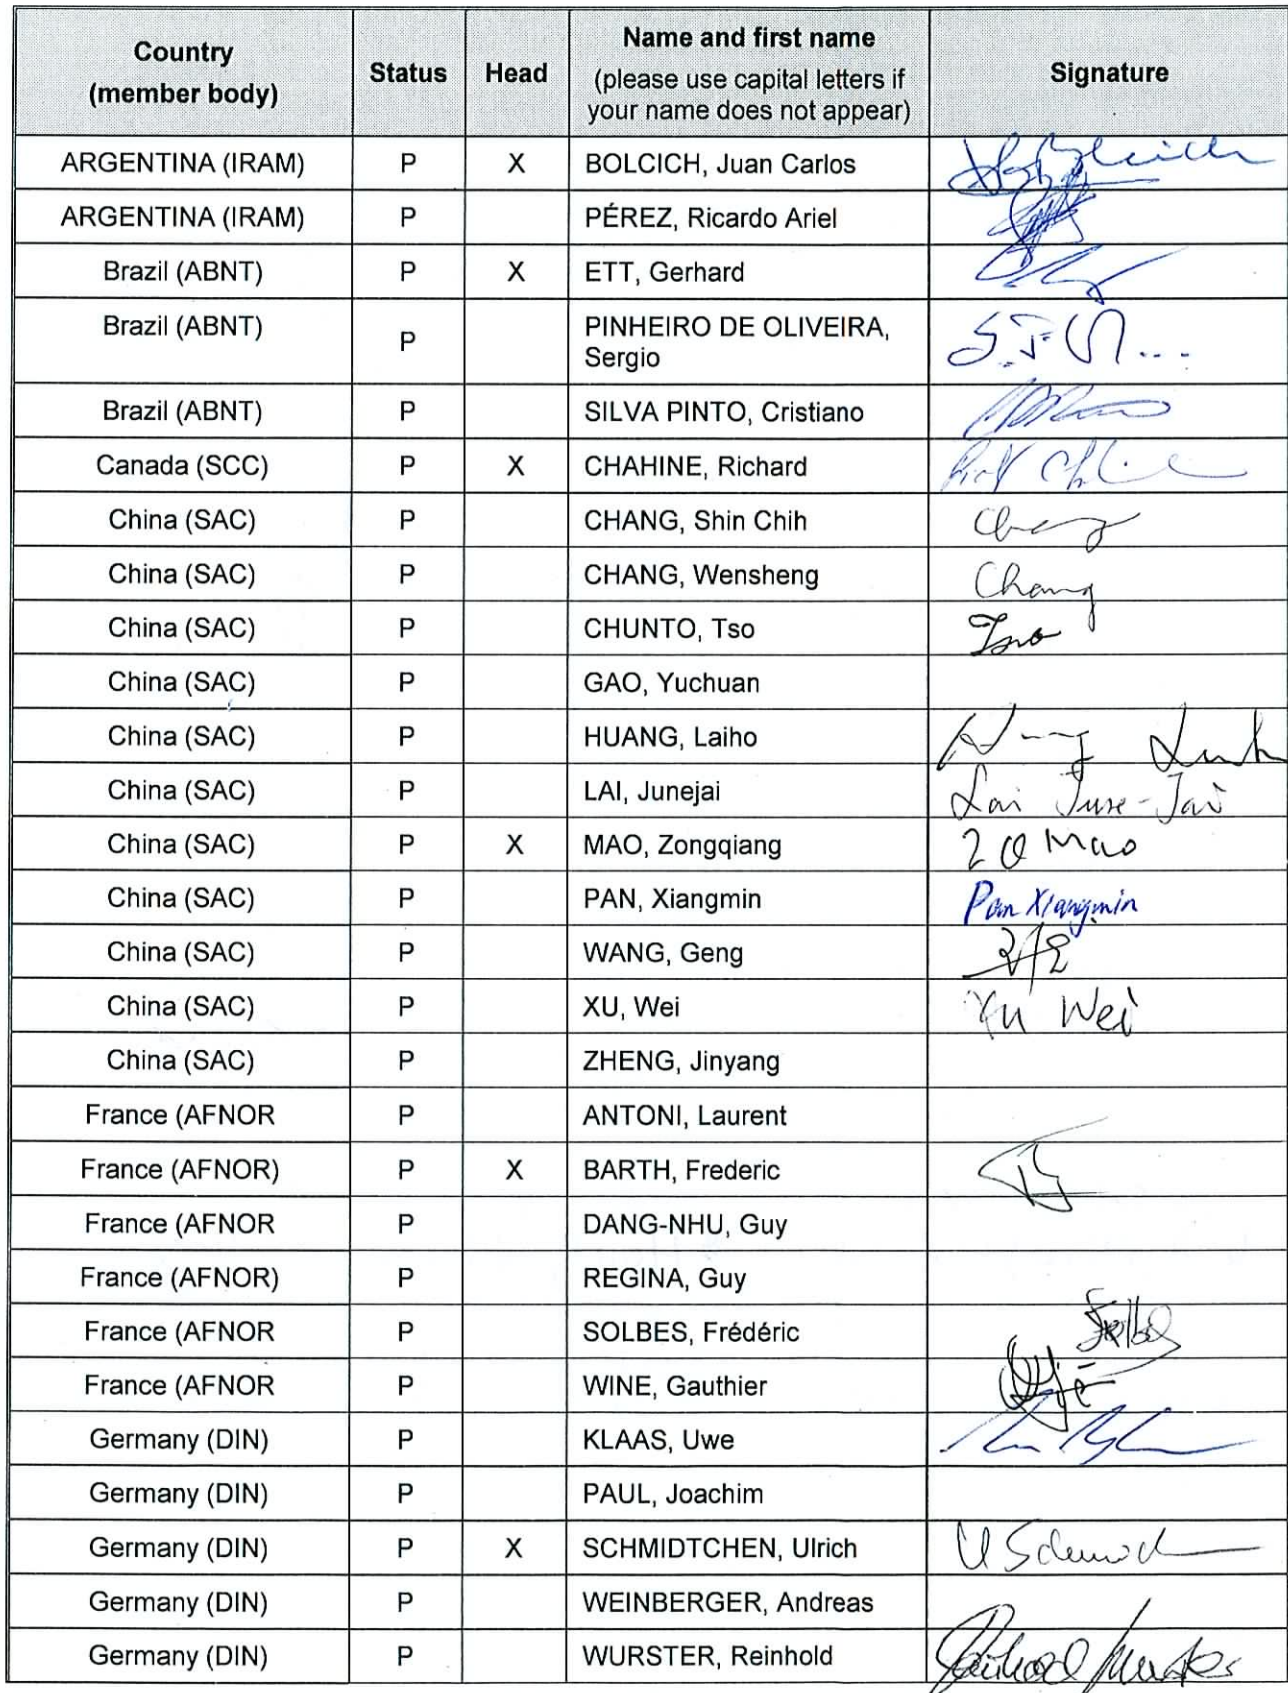 Country (member body) Status Head Name and first name (please use capital letters if your name does not appear) Signature
ARGENTINA (IRAM) P X BOLCICH, Juan Carlos Bolcich
ARGENTINA (IRAM) P PÉREZ, Ricardo Ariel
Brazil (ABNT) P X ETT, Gerhard
Brazil (ABNT) P PINHEIRO DE OLIVEIRA, Sergio
Brazil (ABNT) P SILVA PINTO, Cristiano
Canada (SCC) P X CHAHINE, Richard
China (SAC) P CHANG, Shin Chih Chang
China (SAC) P CHANG, Wensheng Chang
China (SAC) P CHUNTO, Tso Tso
China (SAC) P GAO, Yuchuan
China (SAC) P HUANG, Laiho
China (SAC) P LAI, Junejai Lai June-Jai
China (SAC) P X MAO, Zongqiang ZQ Mao
China (SAC) P PAN, Xiangmin Pan Xiangmin
China (SAC) P WANG, Geng
China (SAC) P XU, Wei Xu Wei
China (SAC) P ZHENG, Jinyang
France (AFNOR P ANTONI, Laurent
France (AFNOR) P X BARTH, Frederic
France (AFNOR P DANG-NHU, Guy
France (AFNOR) P REGINA, Guy
France (AFNOR P SOLBES, Frédéric
France (AFNOR P WINE, Gauthier
Germany (DIN) P KLAAS, Uwe
Germany (DIN) P PAUL, Joachim
Germany (DIN) P X SCHMIDTCHEN, Ulrich
Germany (DIN) P WEINBERGER, Andreas
Germany (DIN) P WURSTER, Reinhold Reinhold Wurster